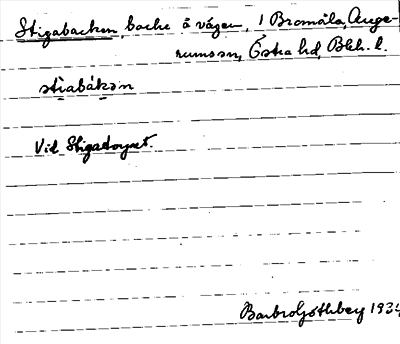 Stigabacken, backe å vägen, i Bromåla, Auge-
rumssn, Östra hd, Blek. l.
stìabákən
Vid Stigatorpet.
Barbro Göthberg 1934